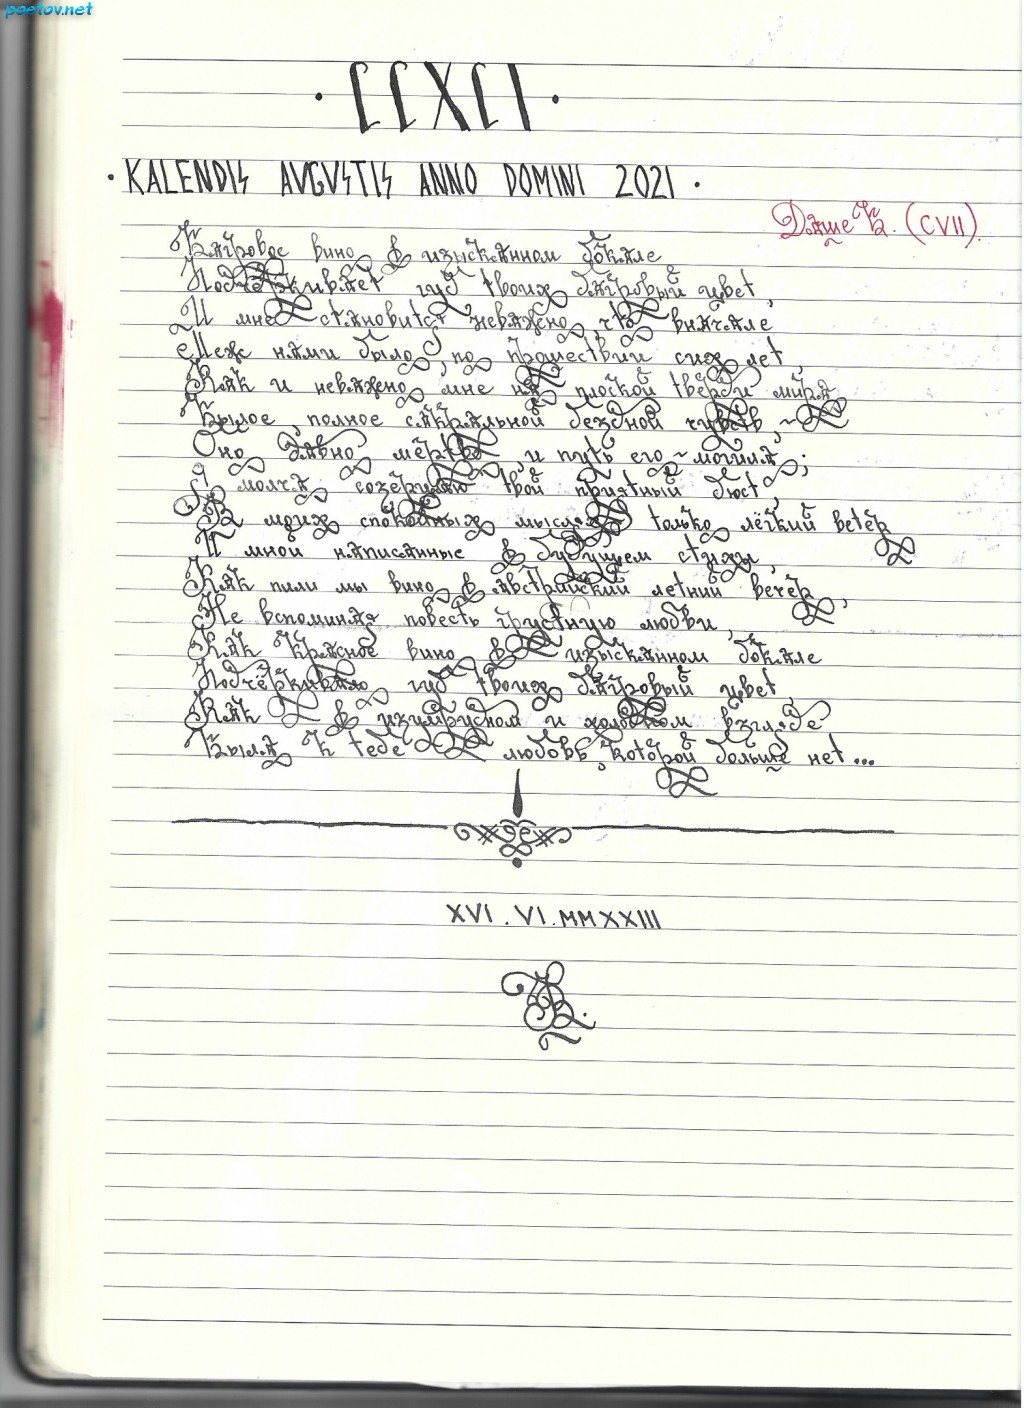 poetov.net
· CCXCI ·
· KALENDIS AVGVSTIS ANNO DOMINI 2021 ·
Даше В. (CVII).
Багровое вино в изысканном бокале
Подчёркивает губ твоих багровый цвет,
И мне становится неважно, что вначале
Меж нами было, по прошествии сих лет,
Как и неважно мне на плоской тверди мира
Былое, полное сакральной бездной чувств, ~
Оно давно мертво, и путь его ~ могила;
Я молча созерцаю твой приятный бюст,
В моих спокойных мыслях только лёгкий ветер
И мной написанные в будущем стихи,
Как пили мы вино в австрийский летний вечер,
Не вспоминая повесть грустную любви,
Как красное вино в изысканном бокале
Подчёркивало губ твоих багровый цвет,
Как в изумрудном и холодном взгляде
Была к тебе любовь, которой больше нет...
XVI.VI.MMXXIII